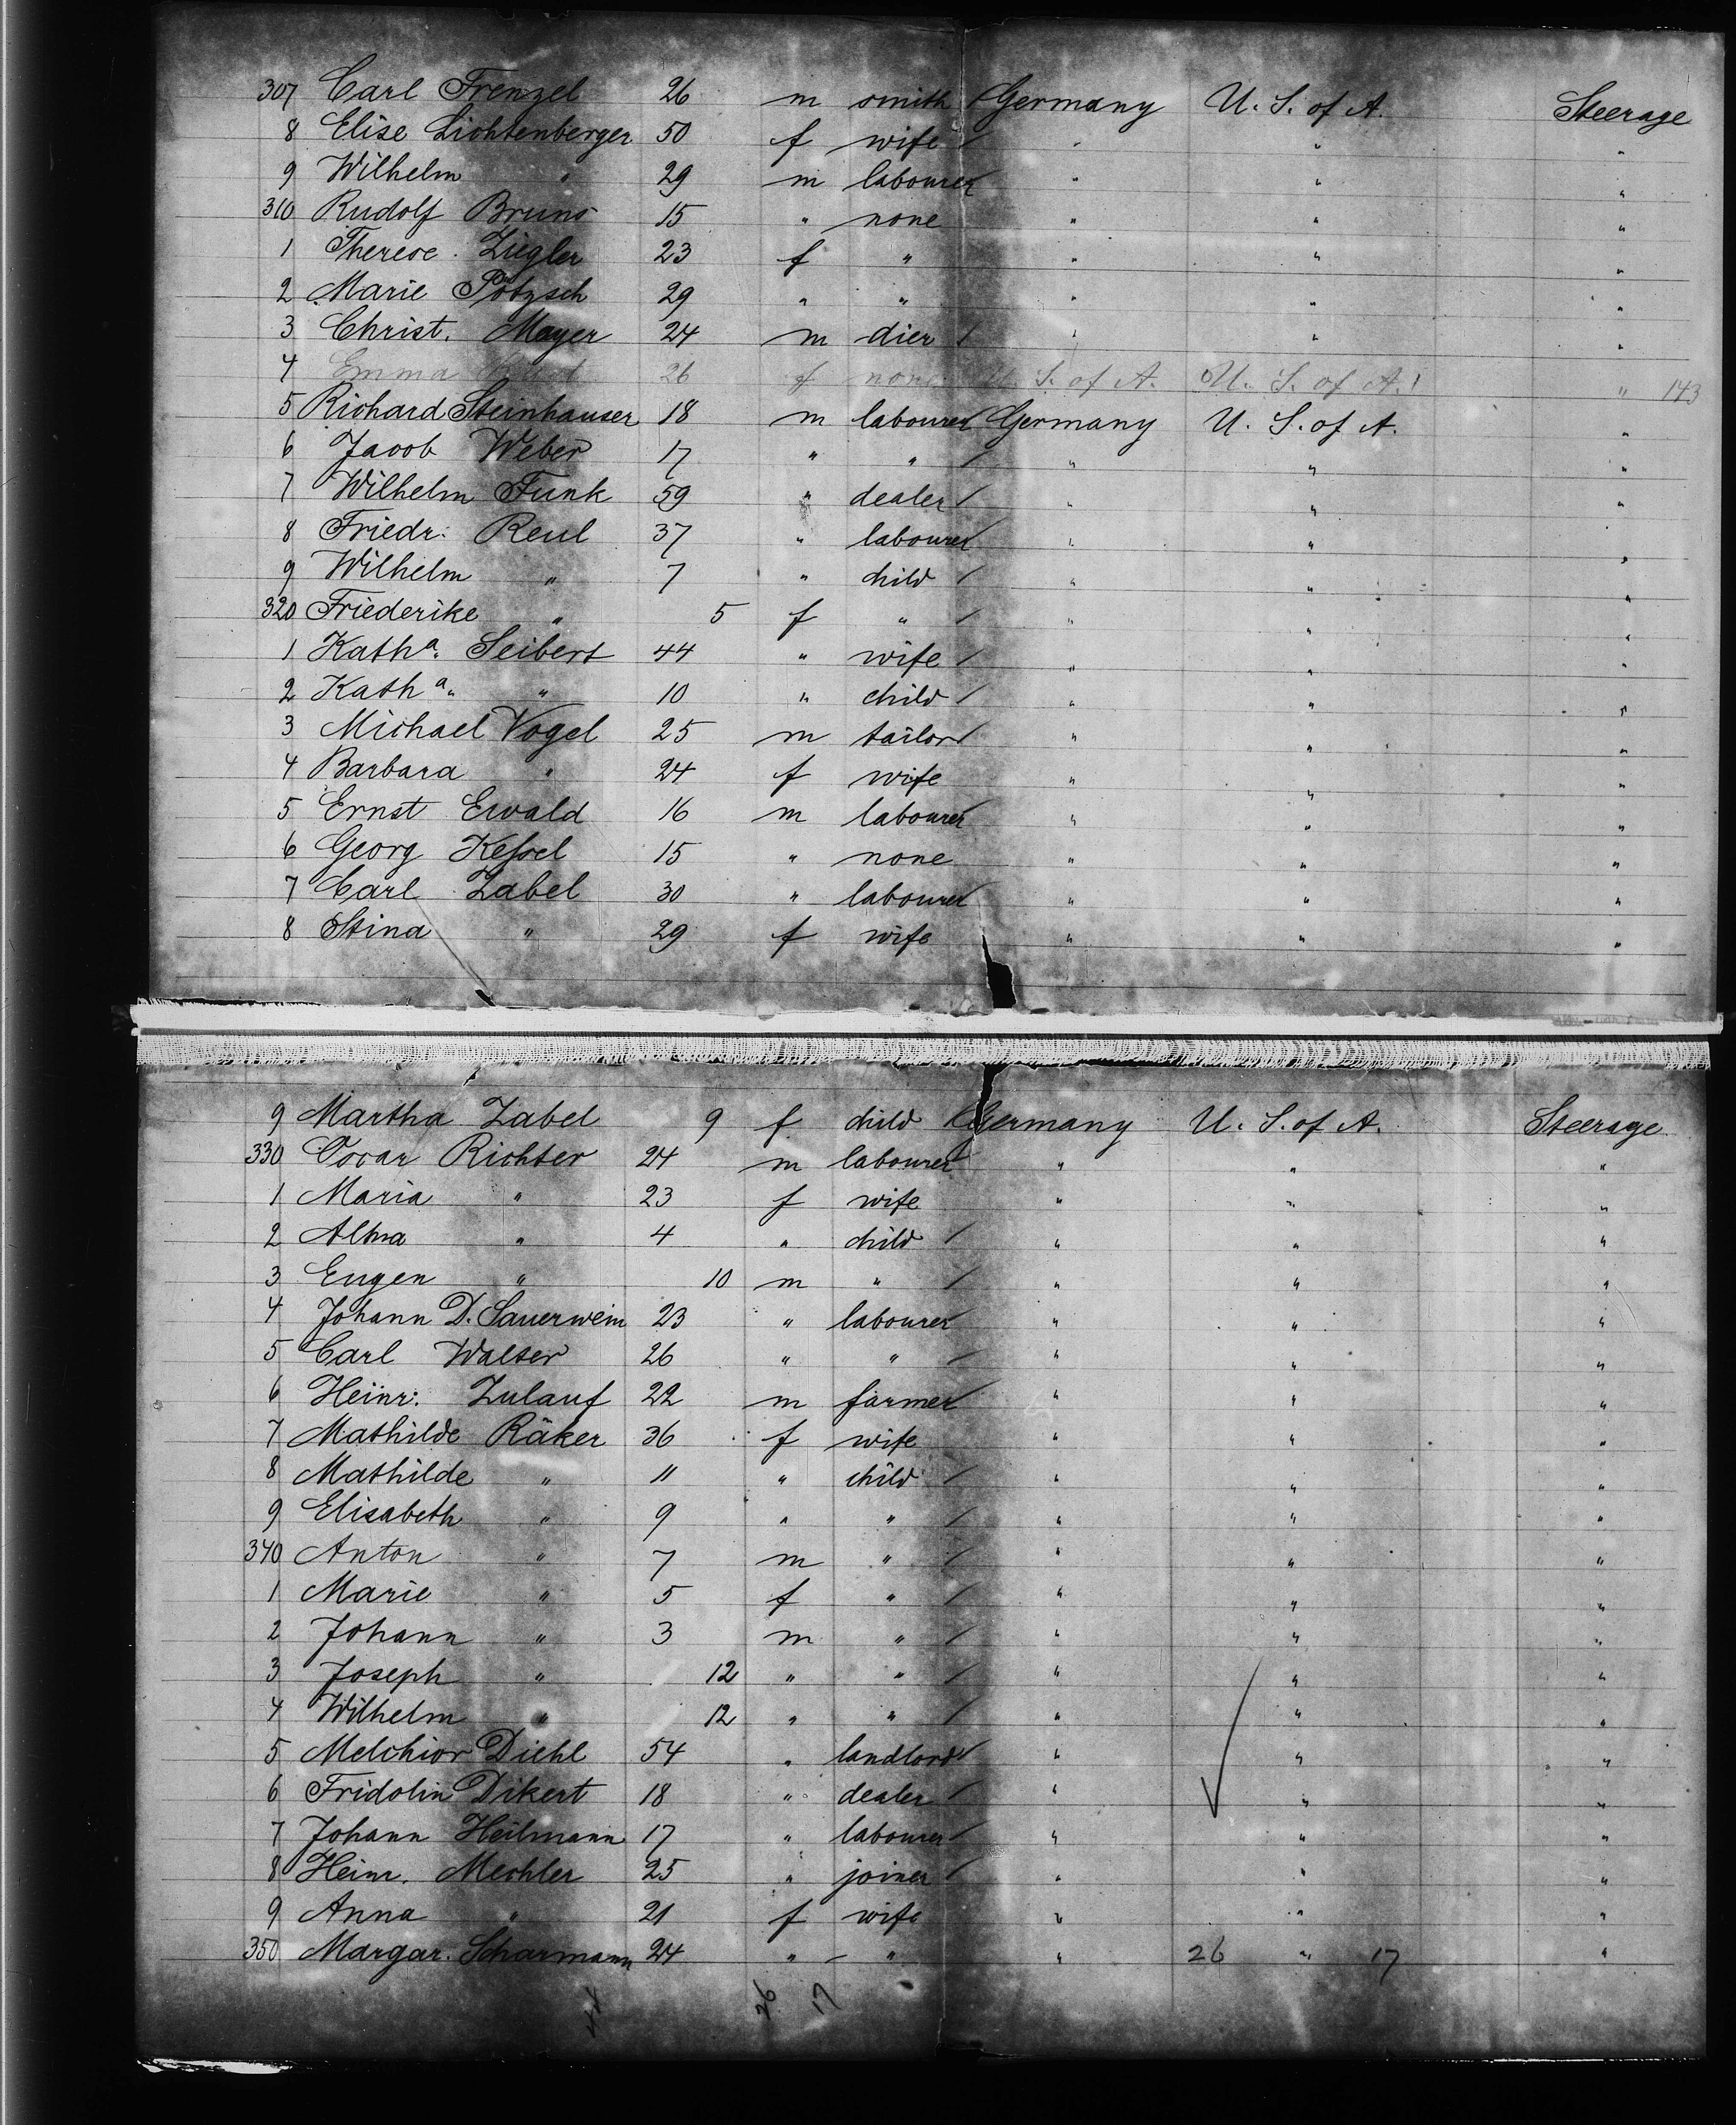 307 Carl Frenzel 26 m smith / Germany U. S. of A. Steerage
8 Elise Lichtenberger 50 f wife / " " "
9 Wilhelm " 29 m labourer " " "
310 Rudolf Bruns 15 " none " " "
1 Therese Ziegler 23 f " " " "
2 Marie Pötzsch 29 " " " " "
3 Christ. Mayer 24 m dier / " " "
4 Emma 26 f none U. S. of A. U. S. of A. " 143
5 Richard Steinhauser 18 m labourer Germany U. S. of A. "
6 Jacob Weber 17 " " / " " "
7 Wilhelm Funk 59 " dealer / " " "
8 Friedr: Reul 37 " labourer " " "
9 Wilhelm " 7 " child / " " "
320 Friederike " 5 f " / " " "
1 Katha. Seibert 44 " wife / " " "
2 Katha. " 10 " child / " " "
3 Michael Vogel 25 m tailor / " " "
4 Barbara " 24 f wife " " "
5 Ernst Ewald 16 m labourer " " "
6 Georg Keſsel 15 " none " " "
7 Carl Zabel 30 " labourer " " "
8 Stina " 29 f wife " " "
9 Martha Zabel 9 f child Germany U. S. of A. Steerage
330 Oscar Richter 24 m labourer " " "
1 Maria " 23 f wife " " "
2 Alma " 4 " child / " " "
3 Eugen " 10 m " / " " "
4 Johann D. Sauerwein 23 " labourer " " "
5 Carl Walter 26 " " / " " "
6 Heinr: Zulauf 22 m farmer " " "
7 Mathilde Räker 36 f wife " " "
8 Mathilde " 11 " child / " " "
9 Elisabeth " 9 " " / " " "
340 Anton " 7 m " / " " "
1 Marie " 5 f " / " " "
2 Johann " 3 m " / " " "
3 Joseph " 12 " " / " " "
4 Wilhelm " 12 " " / " " "
5 Melchior Diehl 54 " landlord / " " "
6 Fridolin Dikert 18 " dealer / " " "
7 Johann Heilmann 17 " labourer / " " "
8 Heinr. Mechler 25 " joiner / " " "
9 Anna " 21 f wife " " "
350 Margar. Scharmann 24 " - " " 26 " 17 "
26 17